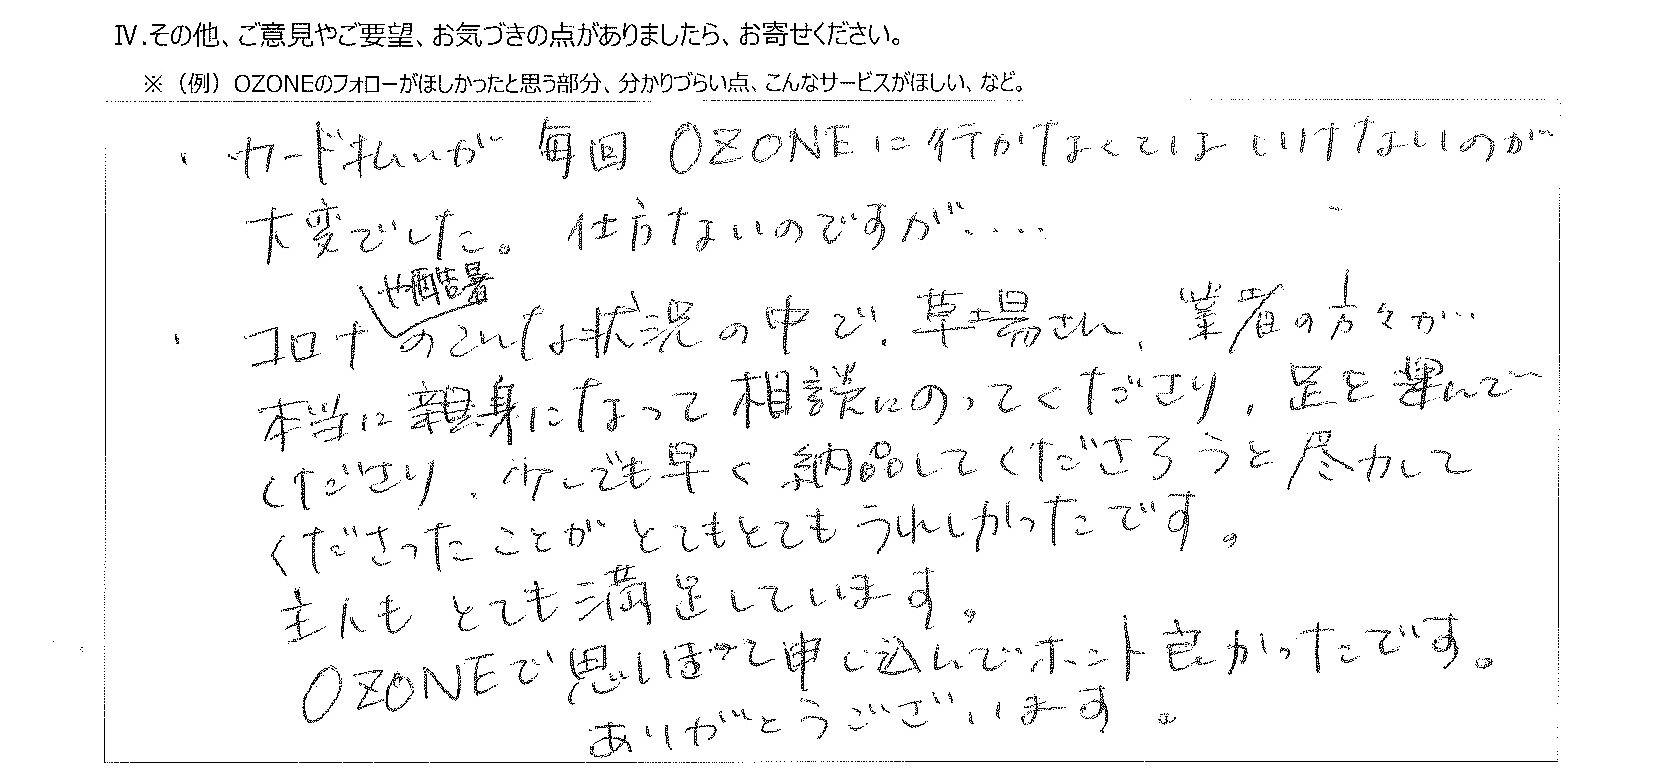 Ⅳ.その他、ご意見やご要望、お気づきの点がありましたら、お寄せください。
※（例）OZONEのフォローがほしかったと思う部分、分かりづらい点、こんなサービスがほしい、など。
・カード払いが毎回OZONEに行かなくてはいけないのが
大変でした。仕方ないのですが....
や酷暑
・コロナのこんな状況の中で、草場さん、業者の方々が
本当に親身になって相談にのってくださり、足を運んで
くださり、少しでも早く納品してくださろうと尽力して
くださったことがとてもとてもうれしかったです。
主人もとても満足しています。
OZONEで思いきって申し込んでホント良かったです。
ありがとうございます。